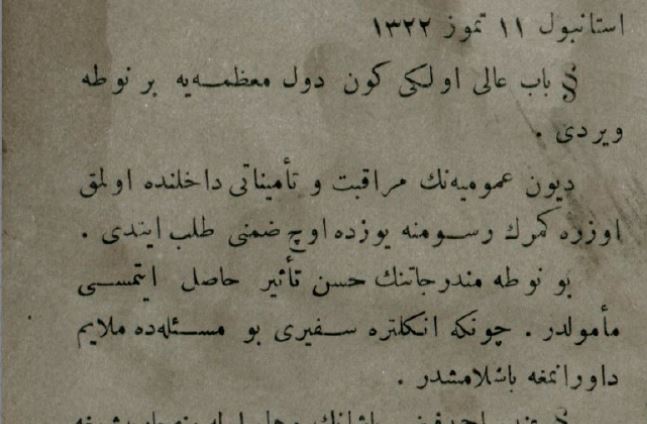 استانبول ١١ تموز ١٣٢٢
§ باب عالی اولکی کون دول معظمــه‌یه بر نوطه
ویردی .
دیون عمومیه‌نك مراقبت و تأمیناتی داخلنده اولمق
اوزره کمرك رســومنه یوزده اوچ ضمنی طلب ایتدی .
بو نوطه مندرجاتنك حسن تأثیر حاصل ایتمســی
مأمولدر . چونکه انکلتره ســفیری بو مســئله‌ده ملایم
داورانمغه باشلامشدر .